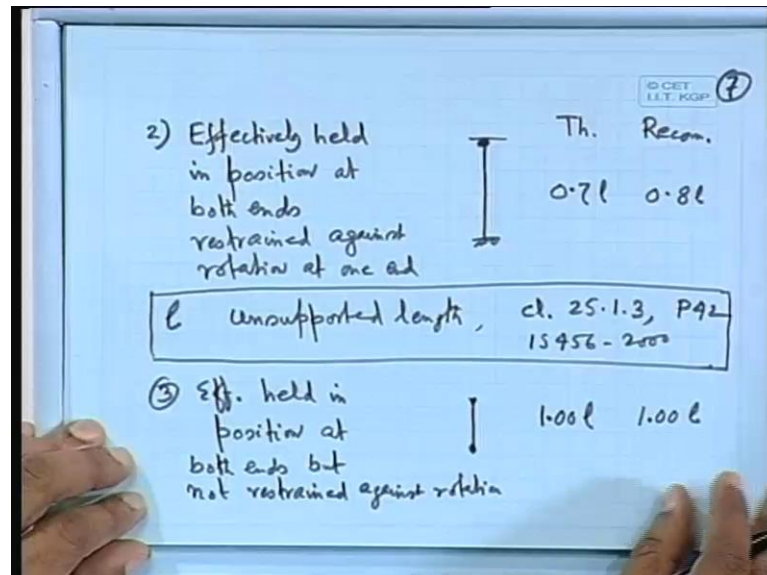 © CET
I.I.T. KGP
7
Th. Recom.
2) Effectively held
in position at
both ends
restrained against
rotation at one end
0.7l 0.8l
l unsupported length, cl. 25.1.3, P42
IS456-2000
3 Eff. held in
position at
both ends but
not restrained against rotation
1.00l 1.00l